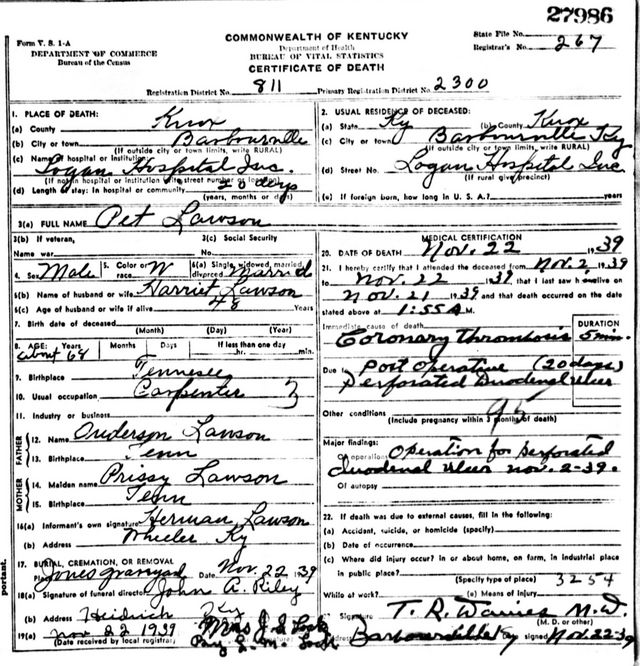 27986
Form V. S. 1-A
DEPARTMENT OF COMMERCE
Bureau of the Census
COMMONWEALTH OF KENTUCKY
Department of Health
BUREAU OF VITAL STATISTICS
CERTIFICATE OF DEATH
State File No.
Registrar's No. 267
Registration District No. 811 Primary Registration District No. 2300
1. PLACE OF DEATH:
(a) County Knox
(b) City or town Barbourville
(If outside city or town limits, write RURAL)
(c) Name of hospital or institution:
Logan Hospital Inc.
(If not in hospital or institution write street number or location)
(d) Length of stay: In hospital or community 20 days
(years, months or days)
2. USUAL RESIDENCE OF DECEASED:
(a) State Ky (b) County Knox
(c) City or town Barbourville Ky
(If outside city or town limits, write RURAL)
(d) Street No. Logan Hospital Inc
(If rural give precinct)
(e) If foreign born, how long in U. S. A.? years
3(a) FULL NAME Pet Lawson
3(b) If veteran, 3(c) Social Security
Name war No.
4. Sex Male 5. Color or race W 6(a) Single, widowed, married, divorced Married
6(b) Name of husband or wife Harriet Lawson
6(c) Age of husband or wife if alive 48 Years
7. Birth date of deceased
(Month) (Day) (Year)
8. AGE: Years Months Days If less than one day
about 69 hr. min.
9. Birthplace Tennessee
10. Usual occupation Carpenter 3
11. Industry or business
FATHER
12. Name Anderson Lawson
13. Birthplace Tenn
MOTHER
14. Maiden name Prissy Lawson
15. Birthplace Tenn
16(a) Informant's own signature Herman Lawson
(b) Address Wheeler Ky
17. BURIAL, CREMATION, OR REMOVAL
Place Jones graveyard Date Nov. 22 1939
18(a) Signature of funeral director John A. Riley
(b) Address Heidrick Ky
19(a) Nov 22 1939 Mrs J. S. Lock
(Date received by local registrar) Per L. M. Lock
MEDICAL CERTIFICATION
20. DATE OF DEATH Nov. 22 1939
21. I hereby certify that I attended the deceased from Nov. 2, 1939
to Nov. 22 1939 that I last saw h alive on
Nov. 21 1939 and that death occurred on the date
stated above at 1:55 A M.
Immediate cause of death DURATION
Coronary Thrombosis 5 min.
Due to Post Operative (20 days)
Perforated Duodenal Ulcer
95
Other conditions
(Include pregnancy within 3 months of death)
Major findings:
Of operations Operation for perforated
duodenal ulcer Nov. 2-39.
Of autopsy
22. If death was due to external causes, fill in the following:
(a) Accident, suicide, or homicide (specify)
(b) Date of occurrence
(c) Where did injury occur? in or about home, on farm, in industrial place
in public place?
(Specify type of place) 3254
While at work? (e) Means of injury
Signature T. R. Davies M.D.
(M. D. or other)
Address Barbourville Ky signed Nov. 22-39
portant.